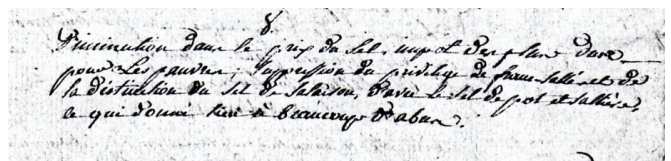 8.
Diminution dans le prix du Sel, impot des plus dure
pour Les pauvres, Suppression du privilege de franc-Salé, et de
la distinction du Sel de Salaison, d'avec le Sel de pot et Salliere,
ce qui donne lieu à beaucoup d'abus.